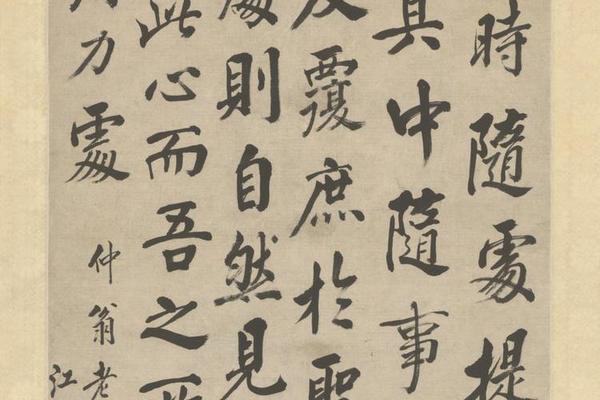 時隨處提
其中隨事
反覆庶於聖
處則自然見
此心而吾之所
力處
仲翁老
江